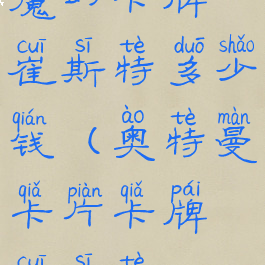 魔 卡 牌
cuī sī tè duō shǎo
崔 斯 特 多 少
qián ào tè màn
钱 ( 奥 特 曼
qiǎ piàn qiǎ pái
卡 片 卡 牌
cuī sī tè